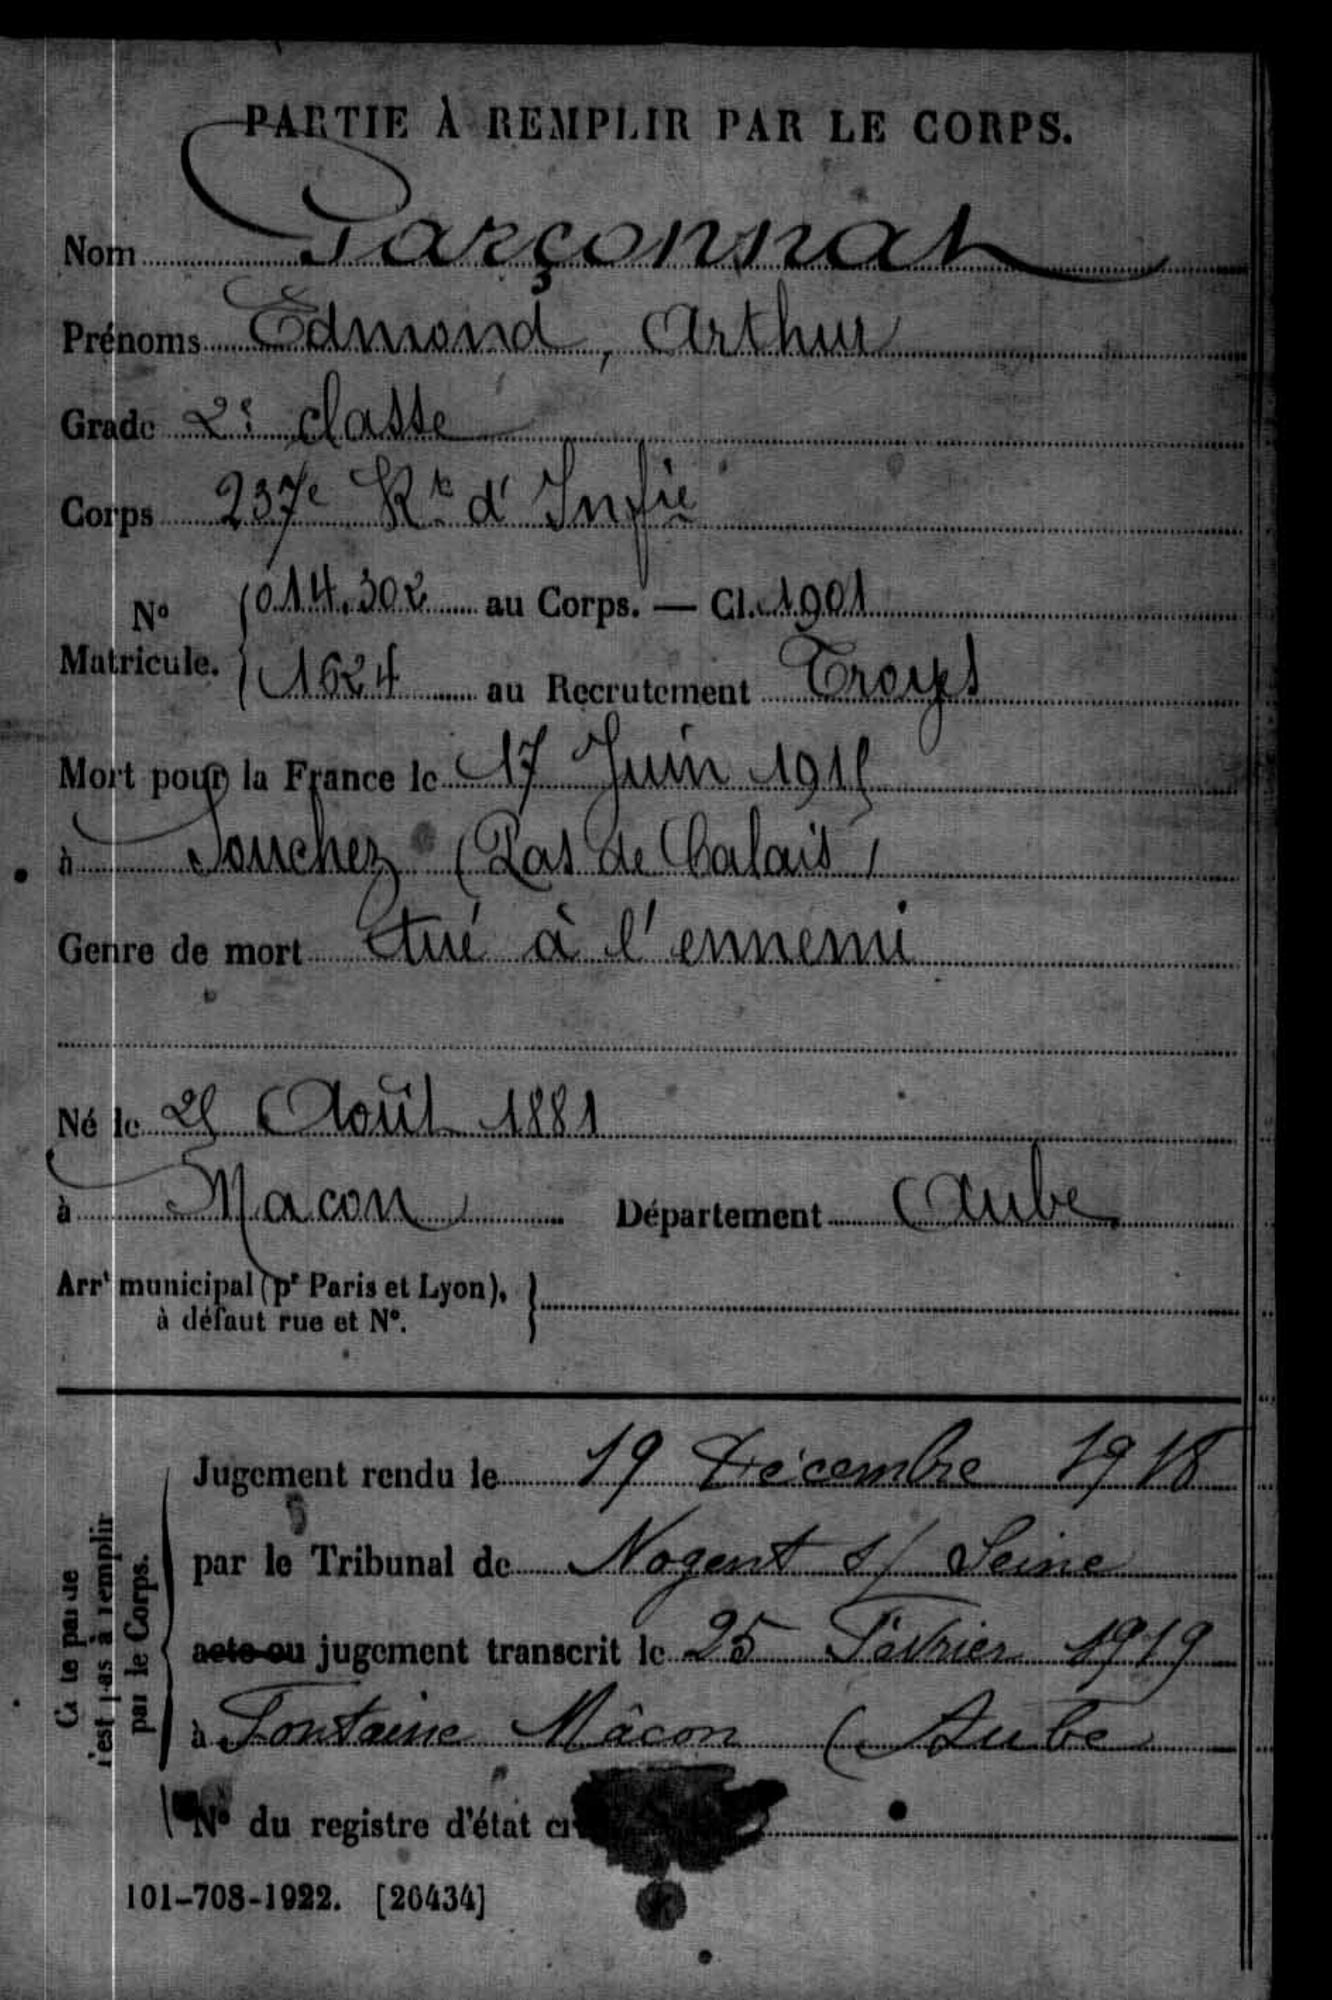 PARTIE À REMPLIR PAR LE CORPS.
Nom Garçonnat
Prénoms Edmond, Arthur
Grade 2e classe
Corps 237e Rt d'Infie
No Matricule. { 014.302 au Corps. — Cl. 1901
1624 au Recrutement Troyes
Mort pour la France le 17 Juin 1915
à Souchez (Pas de Calais)
Genre de mort tué à l'ennemi
Né le 25 Août 1881
à Macon Département Aube
Arrt municipal (pr Paris et Lyon), }
à défaut rue et No.
Jugement rendu le 19 Décembre 1918
par le Tribunal de Nogent s/ Seine
acte ou jugement transcrit le 25 Février 1919
à Fontaine Mâcon (Aube
No du registre d'état
Cette partie
n'est pas à remplir
par le Corps.
101-708-1922. [26434]